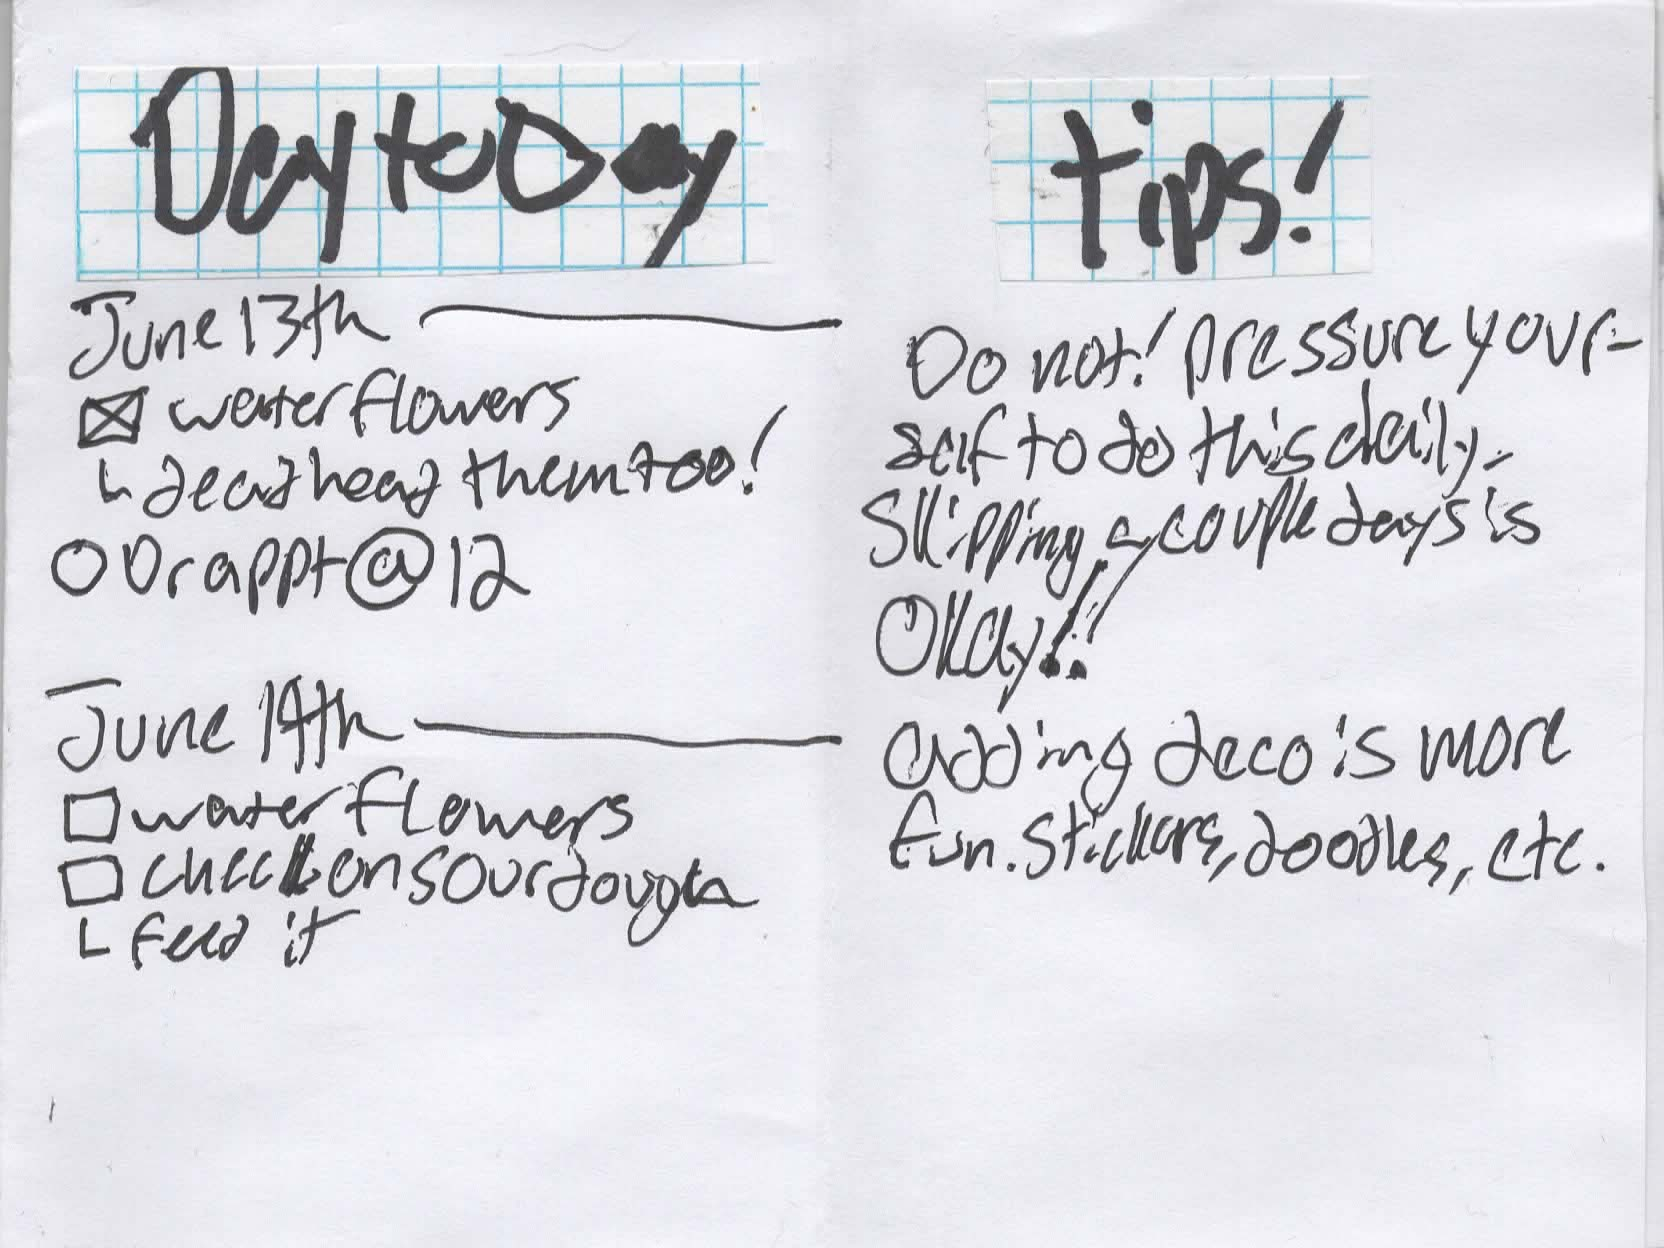 Day to Day
June 13th
☒ water flowers
↳ deadhead them too!
○ Dr appt @ 12
June 14th
☐ water flowers
☐ check on sourdough
↳ feed it
tips!
Do not! pressure your-
self to do this daily.
Skipping a couple days is
Okay!!
adding deco is more
fun. Stickers, doodles, etc.